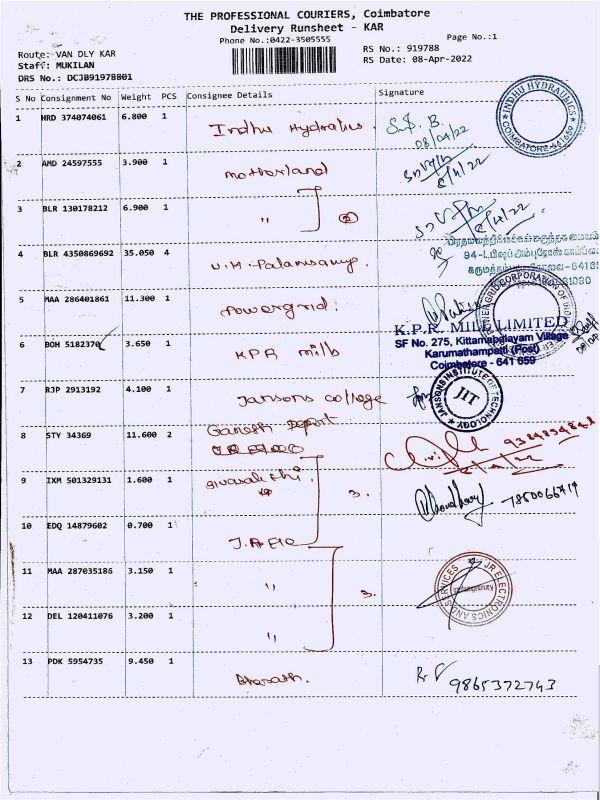 THE PROFESSIONAL COURIERS, Coimbatore
Delivery Runsheet - KAR
Phone No.:0422-3505555
Page No.:1
Route: VAN DLY KAR
RS No.: 919788
Staff: MUKILAN
RS Date: 08-Apr-2022
DRS No.: DCJB91978801
S No Consignment No Weight PCS Consignee Details Signature
1 HRD 374074061 6.800 1 Indhu Hydralics
08/04/22
INDHU HYDRAULICS COIMBATORE-641 659
2 AMD 24597555 3.900 1 motherland
8/4/22
3 BLR 130178212 6.900 1 "
8/4/22
4 BLR 4350869692 35.050 4 V.M. Palanisamy
5 MAA 286401861 11.300 1 Powergrid.
K.P.R. MILL LIMITED
6 BOM 5182370 3.650 1 KPR mills
SF No. 275, Kittampalayam Village
Karumathampatti (Post)
Coimbatore - 641 659
7 RJP 2913192 4.100 1 Jansons college
JANSONS INSTITUTE OF TECHNOLOGY
JIT
8 STY 34369 11.600 2 Ganesh
9384894848
9 IXM 501329131 1.600 1 sivasakthi. 3.
Choudhary
10 EDQ 14879602 0.700 1
11 MAA 287035186 3.150 1 " 3.
JR ELECTRONICS AND SERVICES
12 DEL 120411076 3.200 1 "
13 PDK 5954735 9.450 1 Bharath.
9865372743